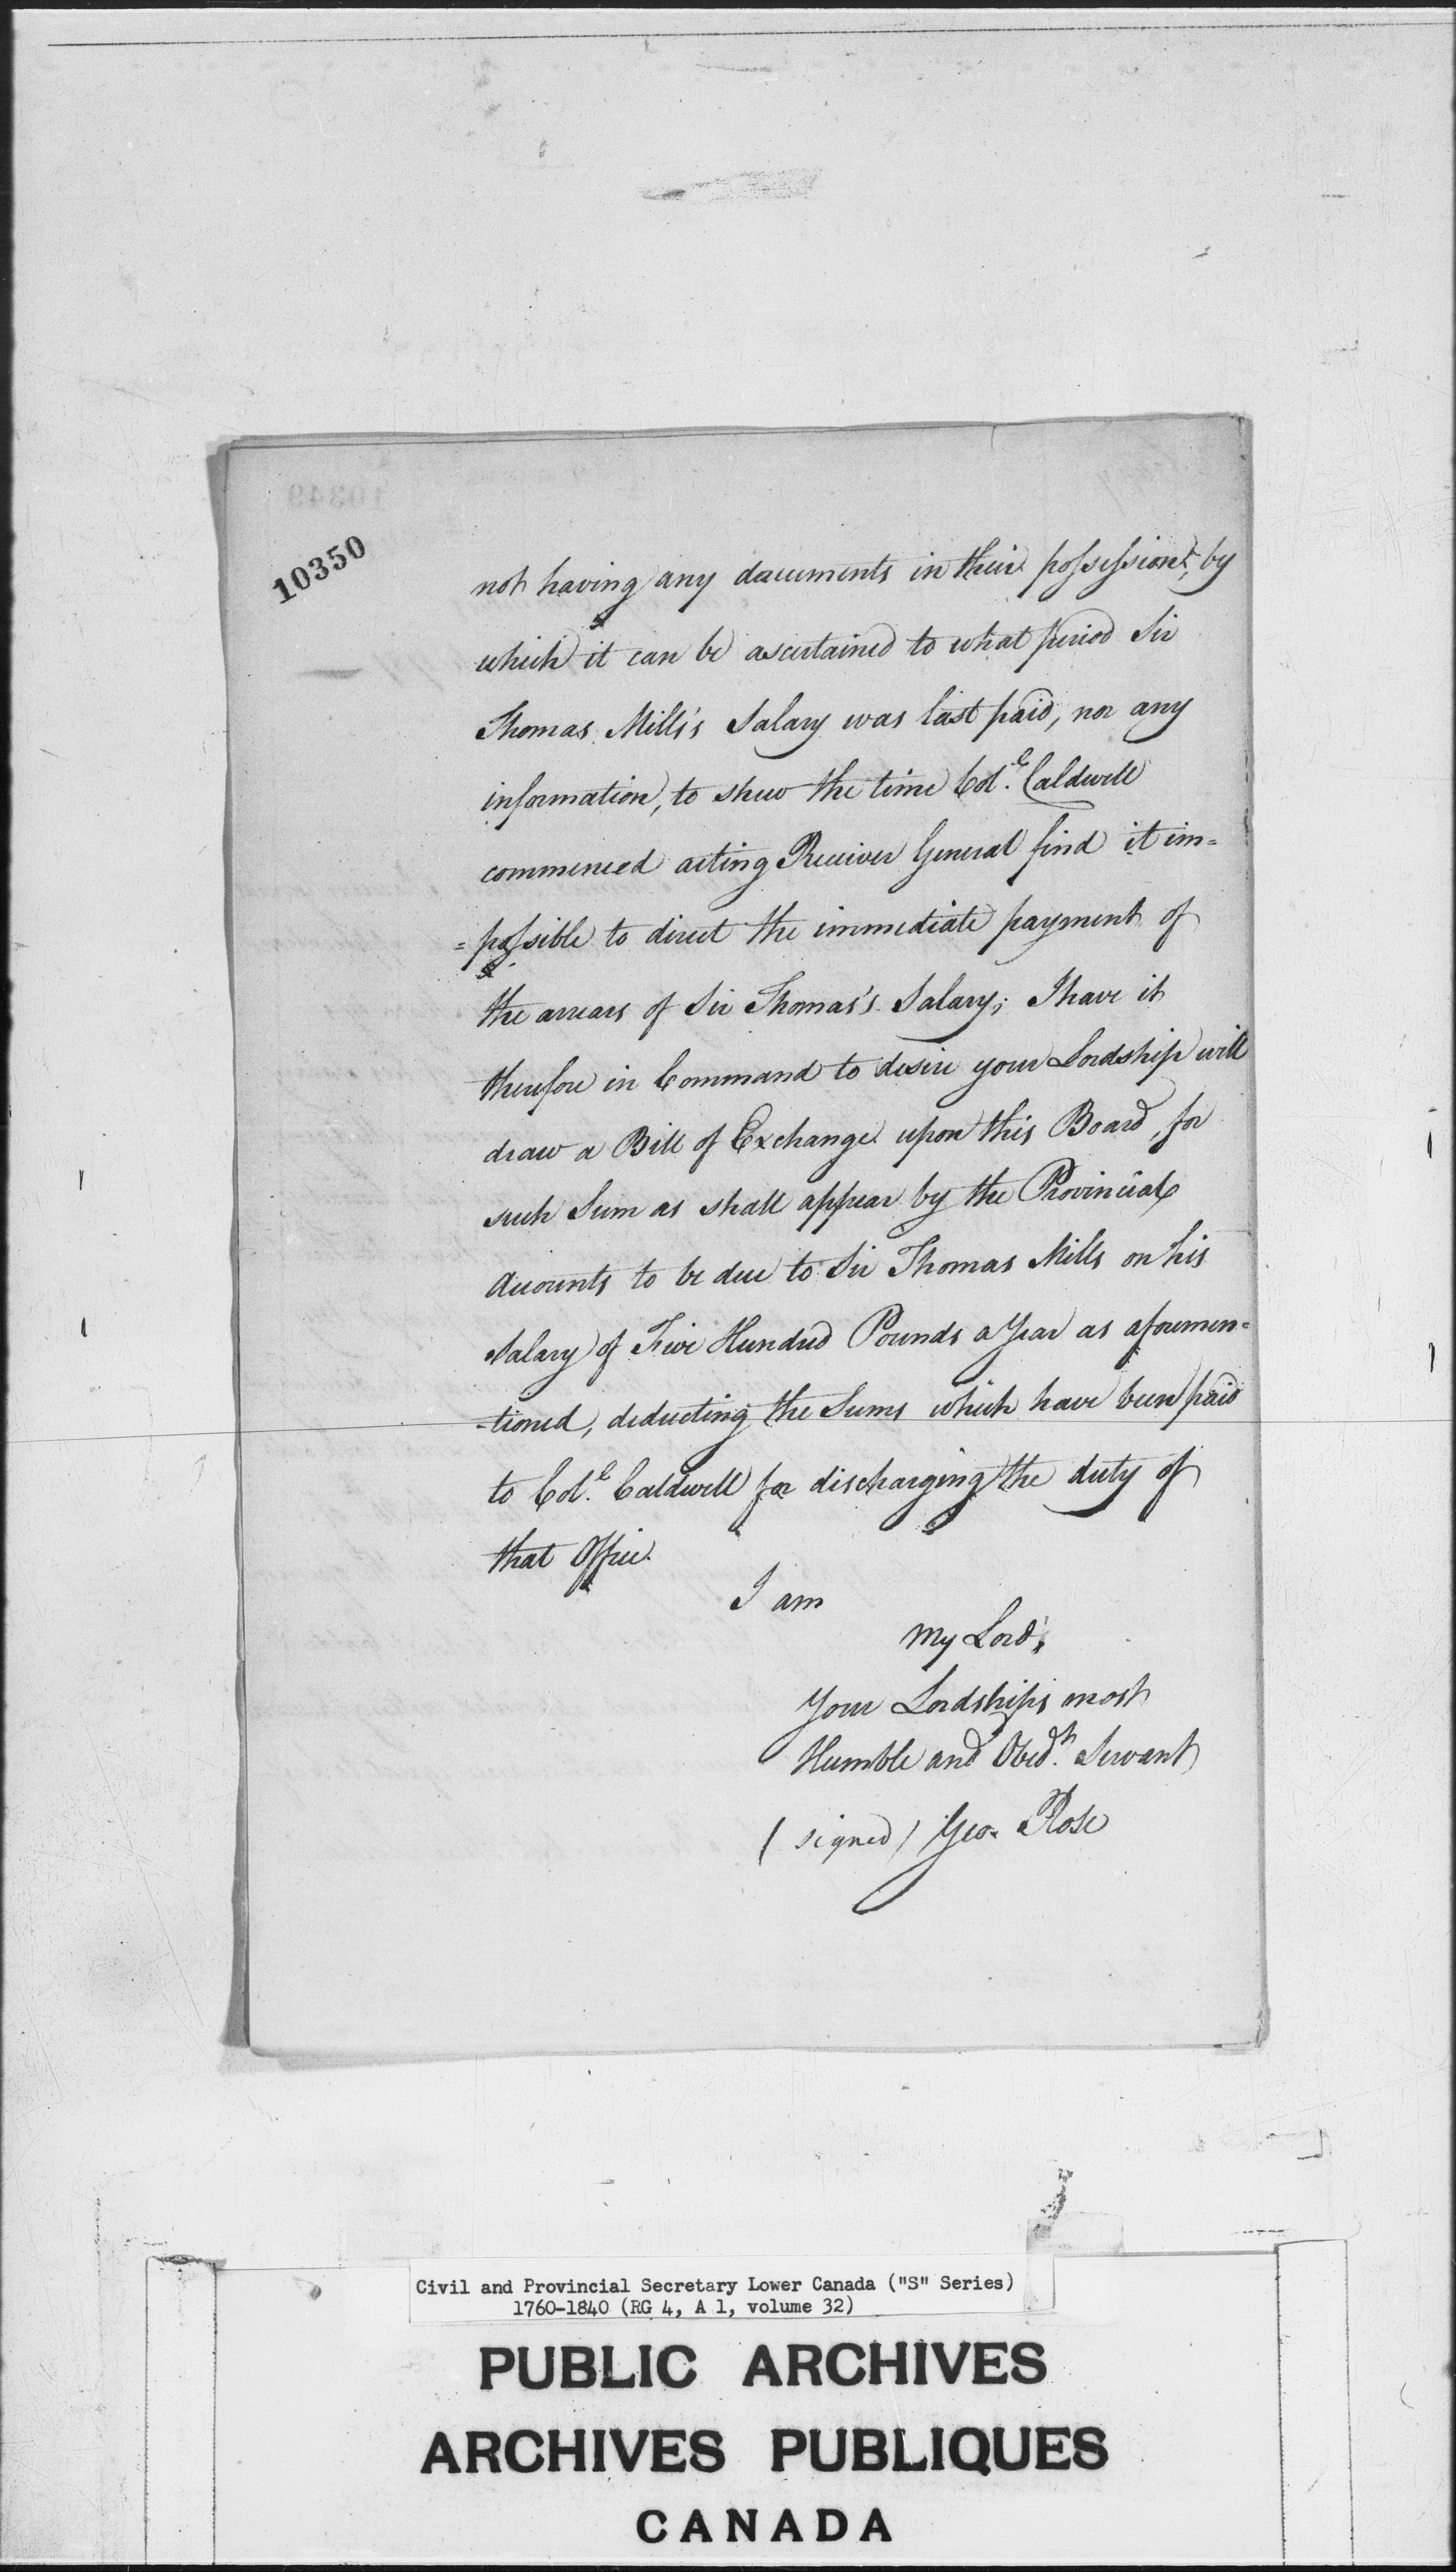 10349
10350
not having any documents in their possession, by
which it can be ascertained to what period Sir
Thomas Mills's Salary was last paid, nor any
information, to shew the time Col.l Caldwell
commenced acting Receiver General find it im=
=possible to direct the immediate payment of
the arrears of Sir Thomas's Salary; I have it
therefore in Command to desire your Lordship will
draw a Bill of Exchange upon this Board, for
such Sum as shall appear by the Provincial
Accounts to be due to Sir Thomas Mills on his
Salary of Five Hundred Pounds a Year as aforemen=
-tioned, deducting the Sums which have been paid
to Col.l Caldwell for discharging the duty of
that Office.
I am
My Lord,
Your Lordships most
Humble and Obed.t Servant
(signed) Geo. Rose
Civil and Provincial Secretary Lower Canada ("S" Series)
1760-1840 (RG 4, A 1, volume 32)
PUBLIC ARCHIVES
ARCHIVES PUBLIQUES
CANADA